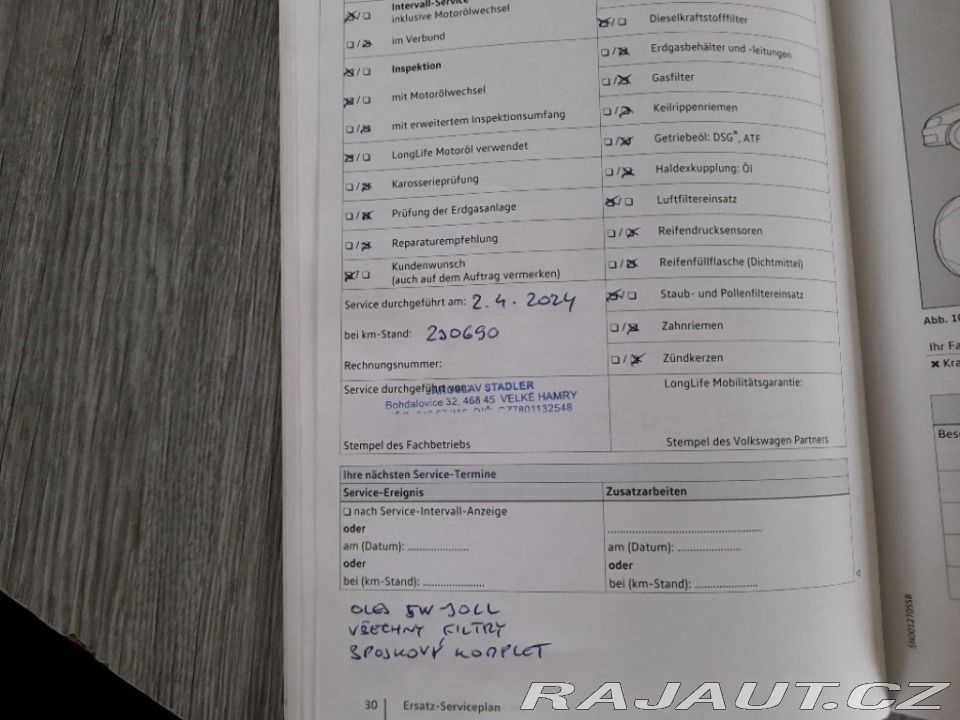 Intervall-Service
inklusive Motorölwechsel
im Verbund
Inspektion
mit Motorölwechsel
mit erweitertem Inspektionsumfang
LongLife Motoröl verwendet
Karosserieprüfung
Prüfung der Erdgasanlage
Reparaturempfehlung
Kundenwunsch
(auch auf dem Auftrag vermerken)
Service durchgeführt am: 2.4.2024
bei km-Stand: 230690
Rechnungsnummer:
Service durchgeführt von:
JAROSLAV STADLER
Bohdalovice 32, 468 45 VELKÉ HAMRY
CZ7801132548
Stempel des Fachbetriebs
Dieselkraftstofffilter
Erdgasbehälter und -leitungen
Gasfilter
Keilrippenriemen
Getriebeöl: DSG®, ATF
Haldexkupplung: Öl
Luftfiltereinsatz
Reifendrucksensoren
Reifenfüllflasche (Dichtmittel)
Staub- und Pollenfiltereinsatz
Zahnriemen
Zündkerzen
LongLife Mobilitätsgarantie:
Stempel des Volkswagen Partners
Ihre nächsten Service-Termine
Service-Ereignis
nach Service-Intervall-Anzeige
oder
am (Datum): .....................
oder
bei (km-Stand): .....................
Zusatzarbeiten
am (Datum): .....................
oder
bei (km-Stand): .....................
OLEJ 5W-30LL
VŠECHNY FILTRY
SPOJKOVÝ KOMPLET
30 Ersatz-Serviceplan
5N0012705SB
Abb. 10
Ihr Fa
Kra
Bes
RAJAUT.CZ